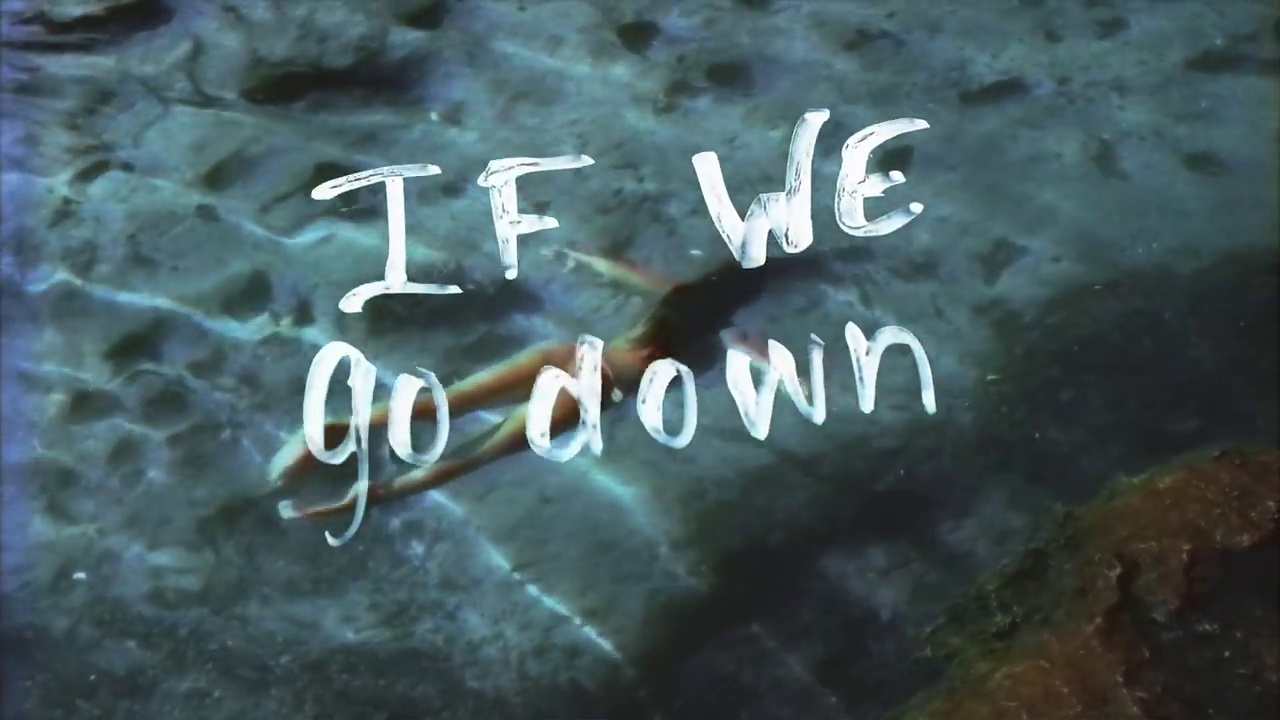 IF WE
go down